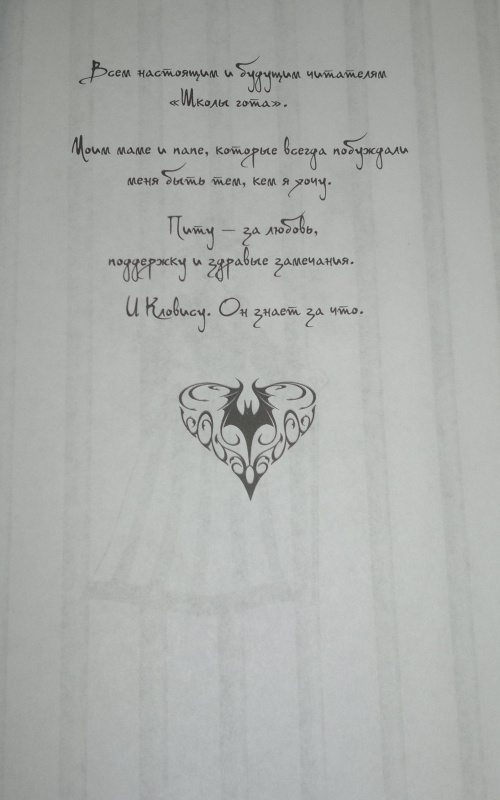 Всем настоящим и будущим читателям
«Школы гота».
Моим маме и папе, которые всегда побуждали
меня быть тем, кем я хочу.
Питу — за любовь,
поддержку и здравые замечания.
И Кловису. Он знает за что.